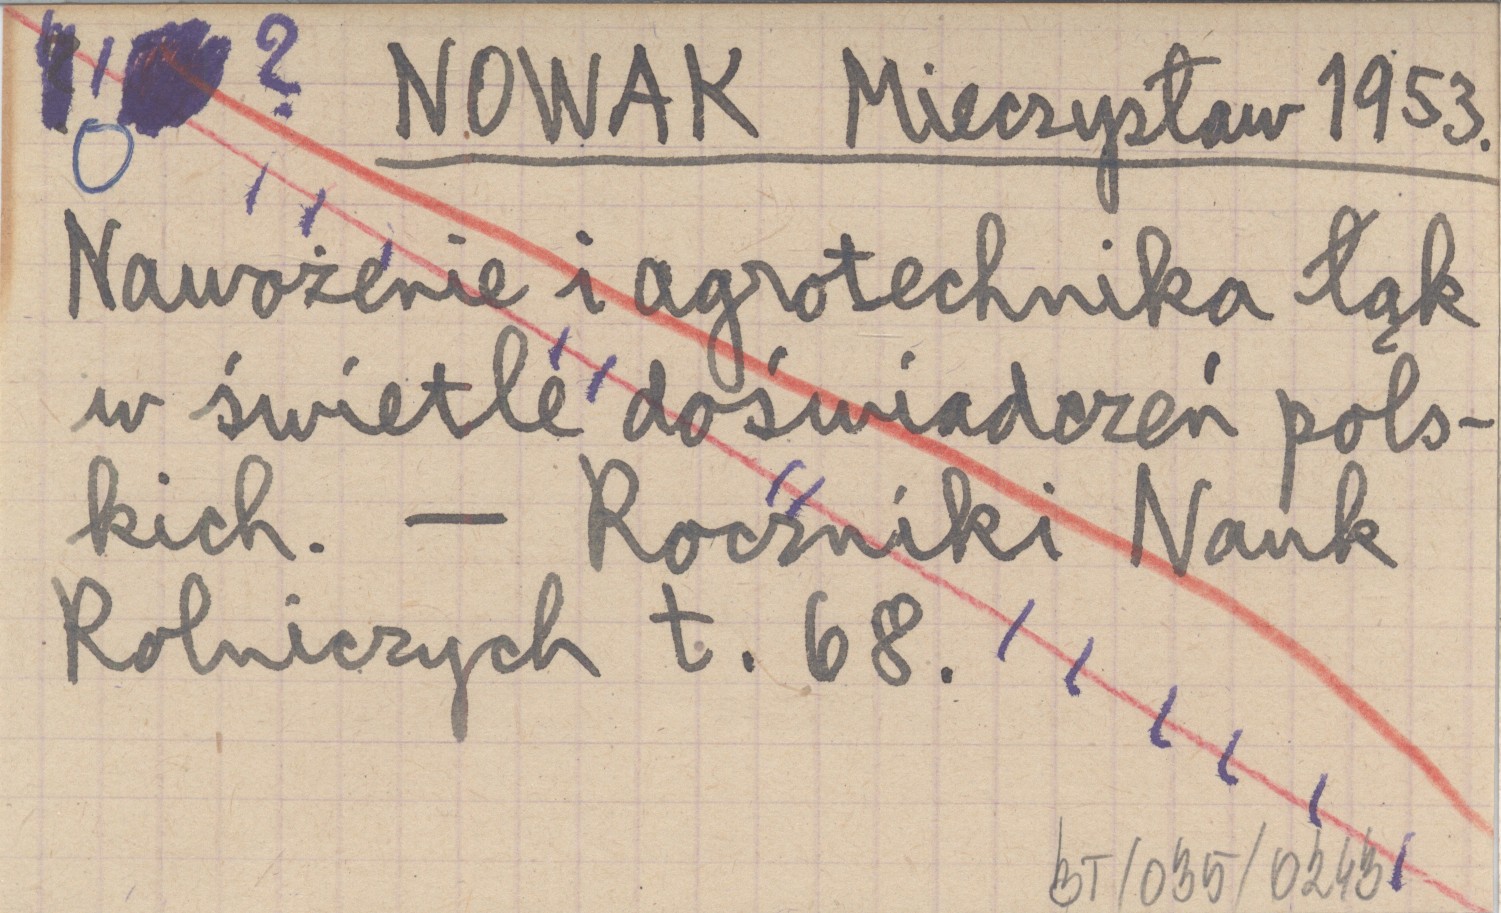 ? NOWAK Mieczysław 1953.
O
Nawożenie i agrotechnika łąk
w świetle doświadczeń pols-
kich. — Roczniki Nauk
Rolniczych t. 68.
BT/035/0243